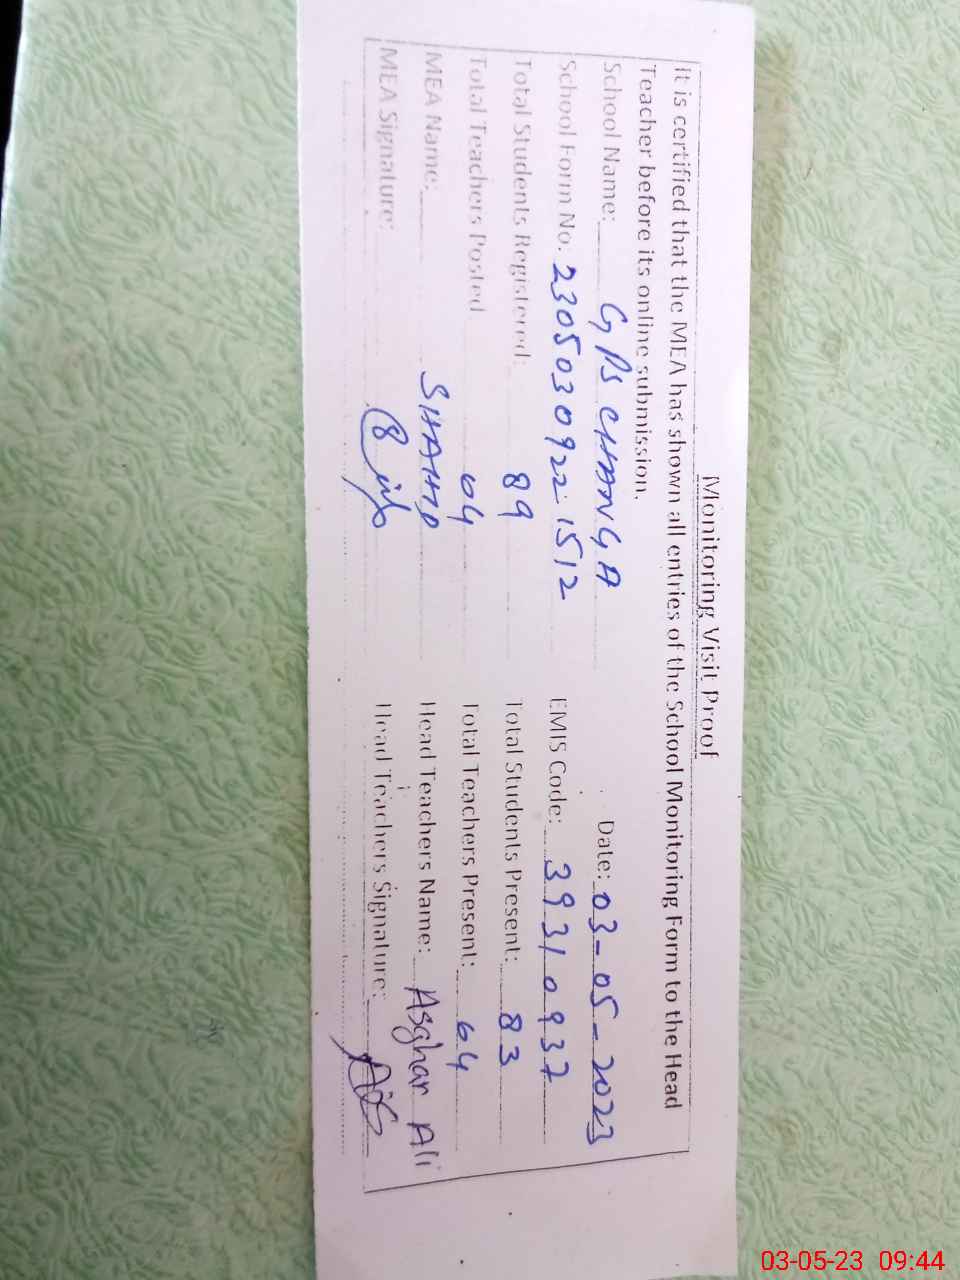 Monitoring Visit Proof
It is certified that the MEA has shown all entries of the School Monitoring Form to the Head
Teacher before its online submission.
Date: 03-05-2023
School Name: GPS CHANGA
School Form No: 2305030922 1512 EMIS Code: 39310937
Total Students Registered: 89 Total Students Present: 83
Total Teachers Posted 04 Total Teachers Present: 04
MEA Name: SHAHID Head Teachers Name: Asghar Ali
MEA Signature: Head Teachers Signature:
03-05-23 09:44